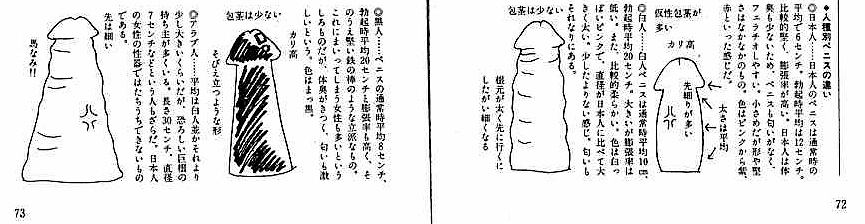 ◆人種別ペニスの違い
◎日本人……日本人のペニスは通常時の
平均で8センチ。勃起時平均は12センチ。
比較的堅く、膨張率が高い。日本人は体
臭も少ないためペニスも匂いがなく、
フェラチオしやすい。小さめだが形や堅
さはなかなかのもの。色はピンクから紫、
赤といった感じだ。
仮性包茎が
多い
カリ高
先細りが多い
太さは平均
◎白人……白人ペニスは通常時平均10cm、
勃起時平均20センチ。大きいが膨張率は
低い。また、比較的柔らかい。色は白っ
ぽいピンクで、直径が日本人に比べて大
きく太い。少したよりない感じ。匂いも
それなりにある。
包茎は少ない
根元が太く先に行くに
したがい細くなる
72
◎黒人……ペニスの通常時平均8センチ、
勃起時平均20センチと膨張率も高く、そ
のうえ堅い鉄の棒のような立派なもの。
これにまいってしまう女性も多いという
しろものだが、体臭がきつく、匂いも激
しいという。色はまっ黒。
包茎は少ない
カリ高
そびえ立つような形
◎アラブ人……平均は白人並かそれより
少し大きいくらいだが、恐ろしい巨根の
持ち主が多くいる。長さ30センチ、直径
7センチなどという人もざらだ。日本人
の女性の性器ではたちうちできないもの
である。
先は細い
馬なみ!!
73